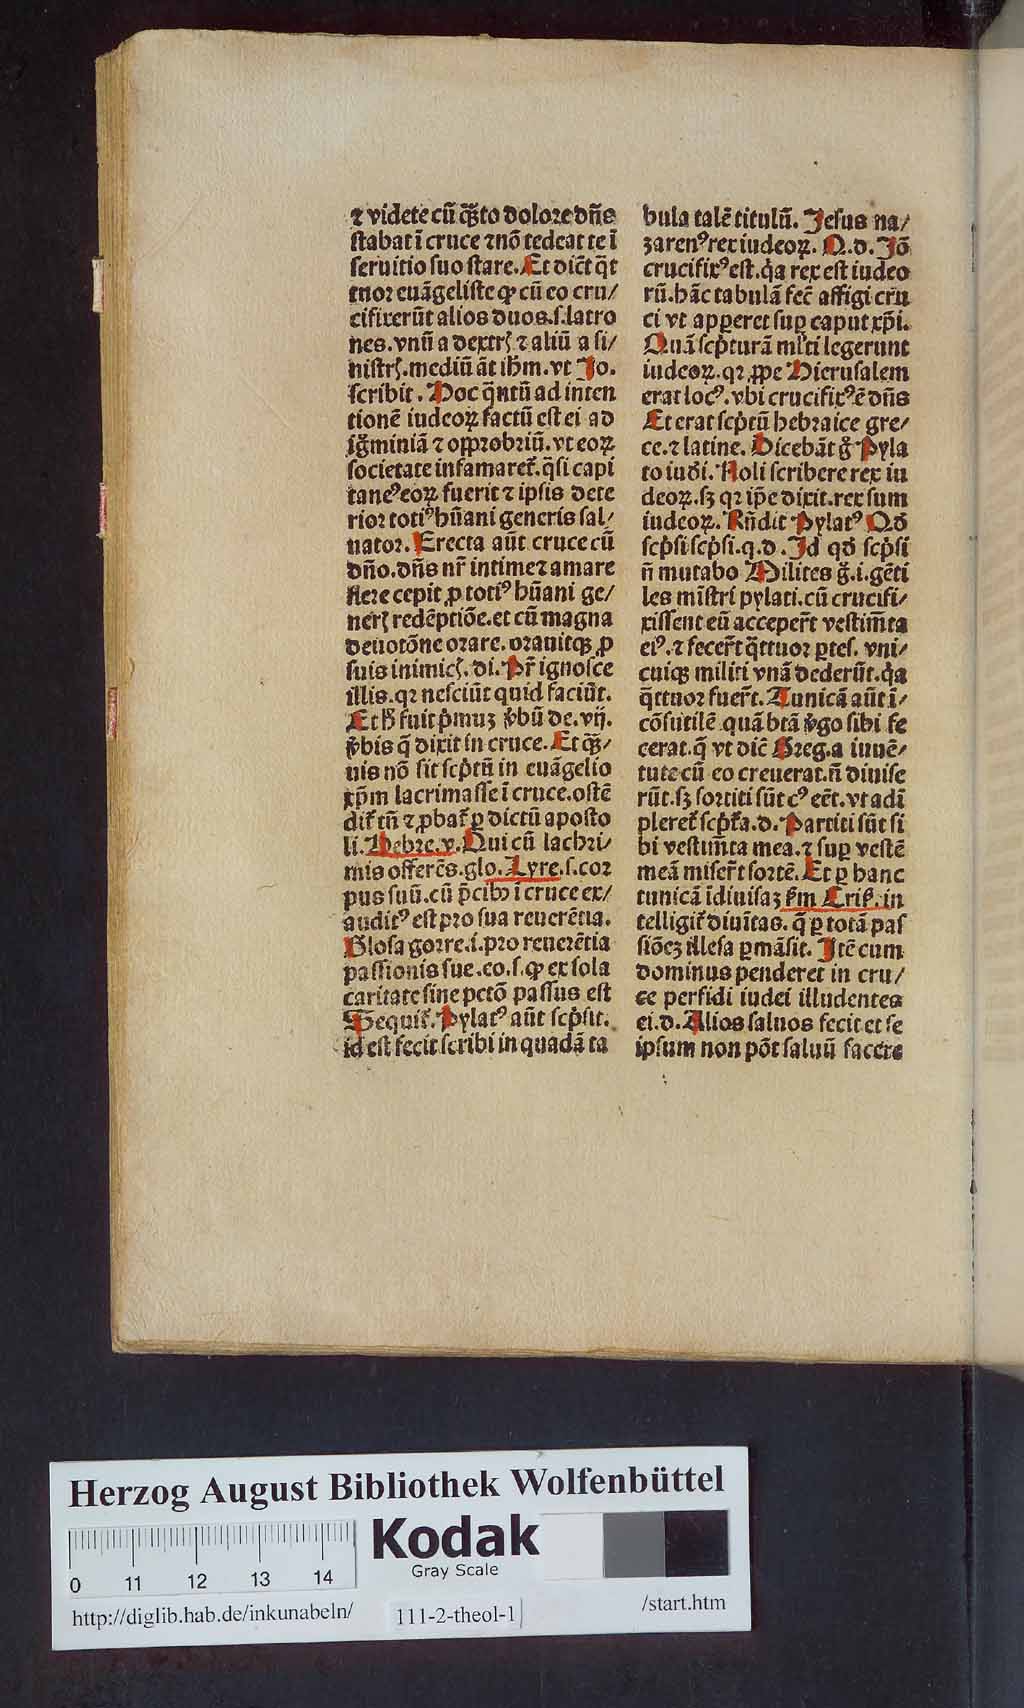 ⁊ videte cū q̄ȝto dolore dn̄s
ſtabat ī cruce ⁊nō tedeat te ī
ſeruitio ſuo ſtare. Et dicūt q̄t
tuor euāgeliſte ꝙ cū eo cru/
cifixerūt alios duos.ſ.latro
nes.vnū a dextrꝭ ⁊ aliū a ſi/
niſtrꝭ.mediū āt ih̄m.vt Jo.
ſcribit. Hoc q̄ntū ad inten
tionē iudeoꝝ factū eſt ei ad
iḡminiā ⁊ opprobriū.vt eoꝝ
ſocietate infamaret᷑.q̄ſi capi
taneꝰ eoꝝ fuerit ⁊ ipſis dete
rior totiꝰ hūani generis ſal/
uator. Erecta aūt cruce cū
dn̄o.dn̄s nr̄ intime⁊ amare
flere cepit ꝓ totiꝰ hūani ge/
nerꝭ redēptiōe.et cū magna
deuotōne orare. orauitqꝫ ꝓ
ſuis inimicꝭ. di. Pr̄ ignoſce
illis.qꝛ neſciūt quid faciūt.
Et h̄ fuit p̓muꝫ v̓bū de. vij.
v̓bis q̄ dixit in cruce. Et q̄ȝ/
uis nō ſit ſcp̓tū in euāgelio
xp̄m lacrimaſſe ī cruce.oſtē
dit᷑ tn̄ ⁊ ꝓbat᷑ ꝑ dictū apoſto
li. Hebre.v. Qui cū lachri/
mis offerēs.glo. Lyre.ſ.cor
pus ſuū.cū p̄cibꝰ ī cruce ex/
auditꝰ eſt pro ſua reuerētia.
Gloſa gorre.i.pro reuerētia
paſſionis ſue.eo.ſ.ꝙ ex ſola
caritate ſine pctō paſſus eſt
Sequit᷑. Pylatꝰ aūt ſcp̓ſit.
id eſt fecit ſcribi in quadā ta
bula talē titulū. Jeſus na/
zarenꝰ rex iudeoꝝ. Q.d. Jō
crucifixꝰ eſt.q̓a rex eſt iudeo
rū.hāc tabulā fec̄ affigi cru
ci vt appareret ſuꝑ caput xp̄i.
Quā ſcp̓turā ml̓ti legerunt
iudeoꝝ.qꝛ ꝓpe Hieruſalem
erat locꝰ. vbi crucifixꝰ ē dn̄s
Et erat ſcp̓tū hebraice gre/
ce.⁊ latine. Dicebāt g̊ Pyla
to iudi. Noli ſcribere rex iu
deoꝝ.ſꝫ qꝛ ip̄e dixit.rex ſum
iudeoꝝ. Rn̄dit Pylatꝰ Qd̄
ſcp̓ſi ſcp̓ſi.q.d. Id qd̄ ſcp̓ſi
n̄ mutabo Milites g̊.i.gēti
les mīſtri pylati.cū crucifi/
xiſſent eū acceper̄t veſtim̄ta
eiꝰ.⁊ fecer̄t q̄ttuor ꝑtes. vni/
cuiqꝫ militi vnā dederūt.q̓a
q̄ttuor fuer̄t. Tunicā aūt ī/
cōſutilē quā btā v̓go ſibi fe
cerat.q̄ vt dic̄ Greg.a iuuē/
tute cū eo creuerat.n̄ diuiſe
rūt.ſꝫ ſortiti ſūt cꝰ eēt.vt adī
pleret᷑ ſcp̓t᷑a.d. Partiti ſūt ſi
bi veſtim̄ta mea.⁊ ſuꝑ veſtē
meā miſer̄t ſortē. Et ꝑ hanc
tunicā īdiuiſaꝫ ẜm Criſ.in
telligit᷑ diuītas. q̄ ꝑ totā paſ
ſiōeꝫ illeſa ꝑmāſit. Itē cum
dominus penderet in cru/
ce perfidi iudei illudentes
ei.d. Alios ſaluos fecit et ſe
ipſum non pōt ſaluū facere
Herzog August Bibliothek Wolfenbüttel
Kodak
Gray Scale
0 11 12 13 14
http://diglib.hab.de/inkunabeln/ 111-2-theol-1 /start.htm